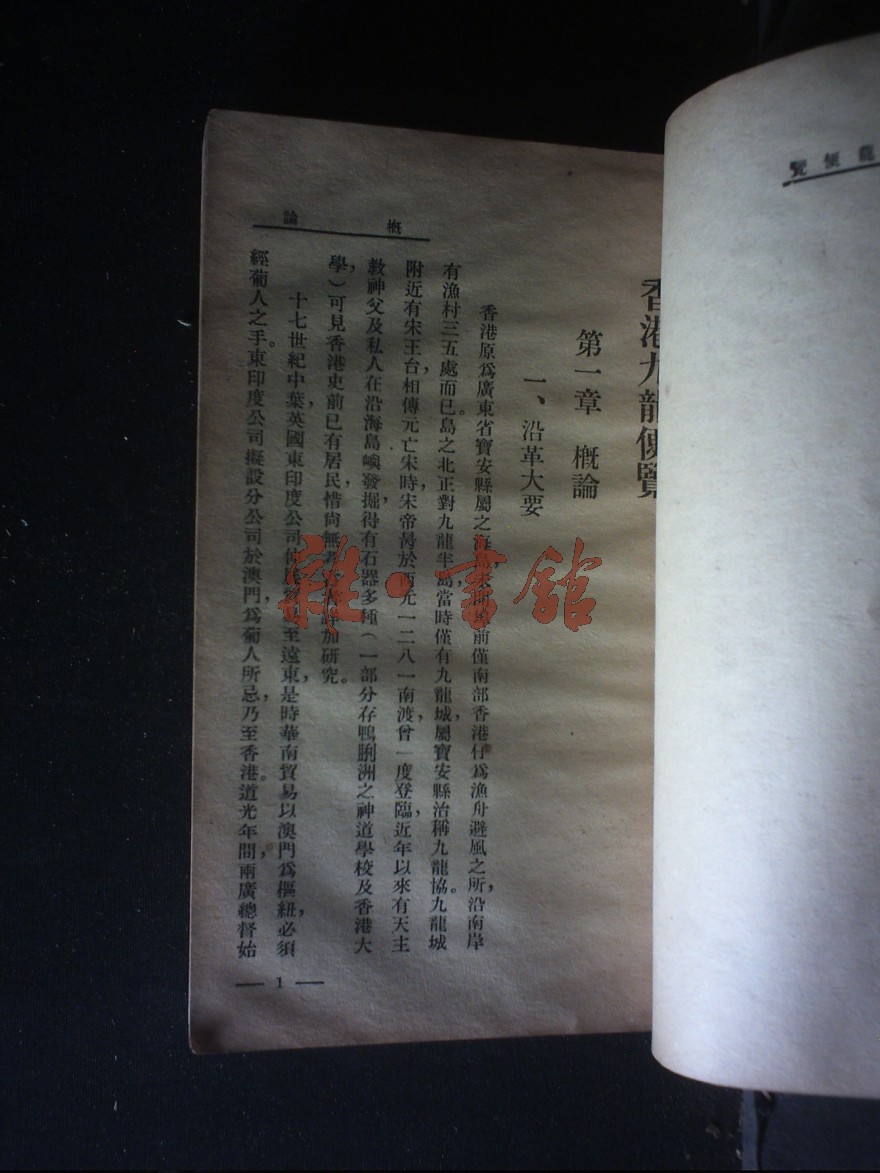 龍便覽
香港九龍便覽
第一章 概論
一、沿革大要
香港原為廣東省寶安縣屬之海島,未開埠前僅南部香港仔為漁舟避風之所,沿南岸
有漁村三五處而已。島之北正對九龍半島,當時僅有九龍城,屬寶安縣治,稱九龍協。九龍城
附近有宋王台,相傳元亡宋時,宋帝昺於西元一二八一南渡,曾一度登臨,近年以來,有天主
教神父及私人在沿海島嶼發掘,得有石器多種(一部分存鴨脷洲之神道學校及香港大
學,)可見香港史前已有居民,惜尚無考加研究。
十七世紀中葉,英國東印度公司至遠東,是時華南貿易以澳門為樞紐,必須
經葡人之手。東印度公司擬設分公司於澳門,為葡人所忌,乃至香港。道光年間,兩廣總督始
概論
— 1 —
雜·書館